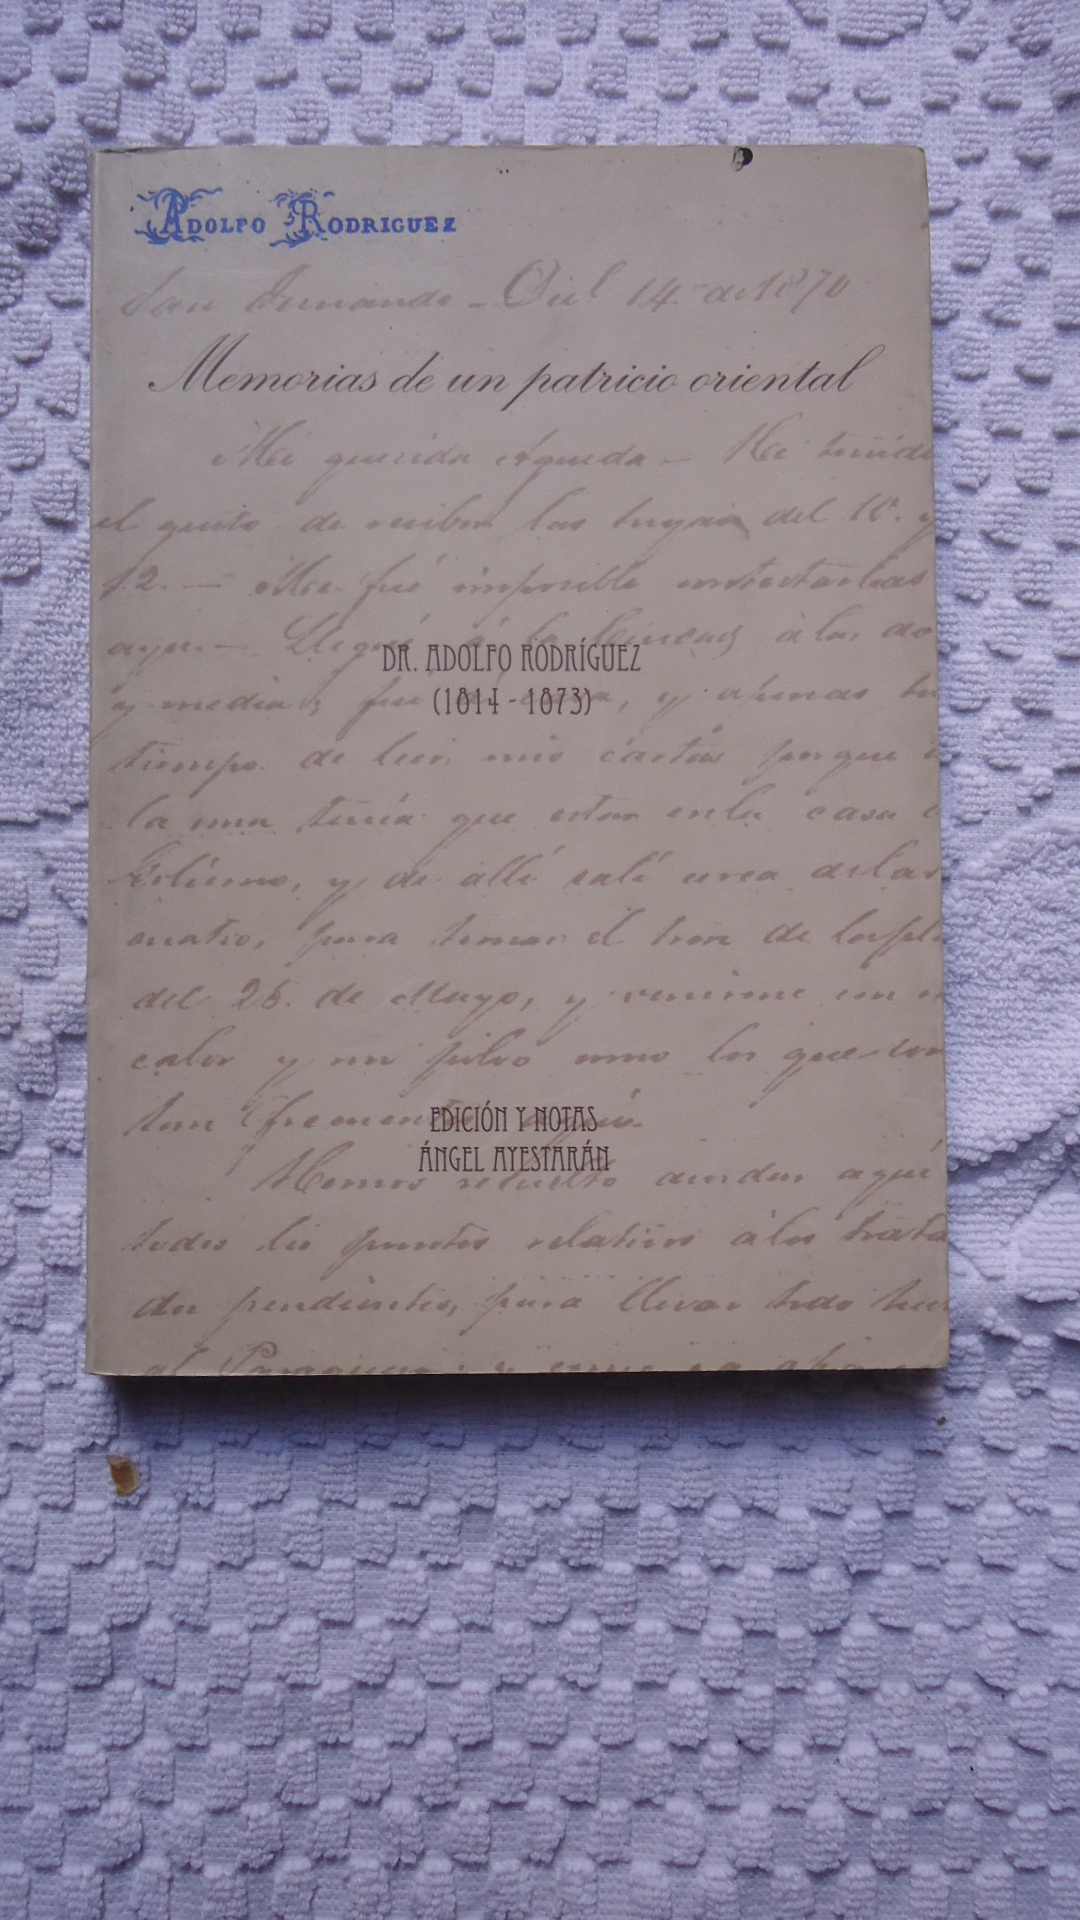 ADOLFO RODRIGUEZ
San Fernando - Dic 14 de 1870
Memorias de un patricio oriental
Mi querida Agueda - He tenido
el gusto de recibir las tuyas del 10. y
12. — Me fué imposible contestarlas
ayer. — Llegué á las dos
DR. ADOLFO RODRÍGUEZ
y media; fui á casa, y apenas tu
(1814 - 1873)
tiempo de leer mis cartas porque
la una tenía que estar en la casa
Gobierno, y de allí salí cerca de las
cuatro, para tomar el tren de
del 25. de Mayo, y venirme con
calor y un polvo como los que son
tan frecuentes aquí.
EDICIÓN Y NOTAS
ÁNGEL AYESTARÁN
Hemos resuelto acordar aquí
todos los puntos relativos á los trata
dos pendientes, para llevar todo
al Paraguay; y como